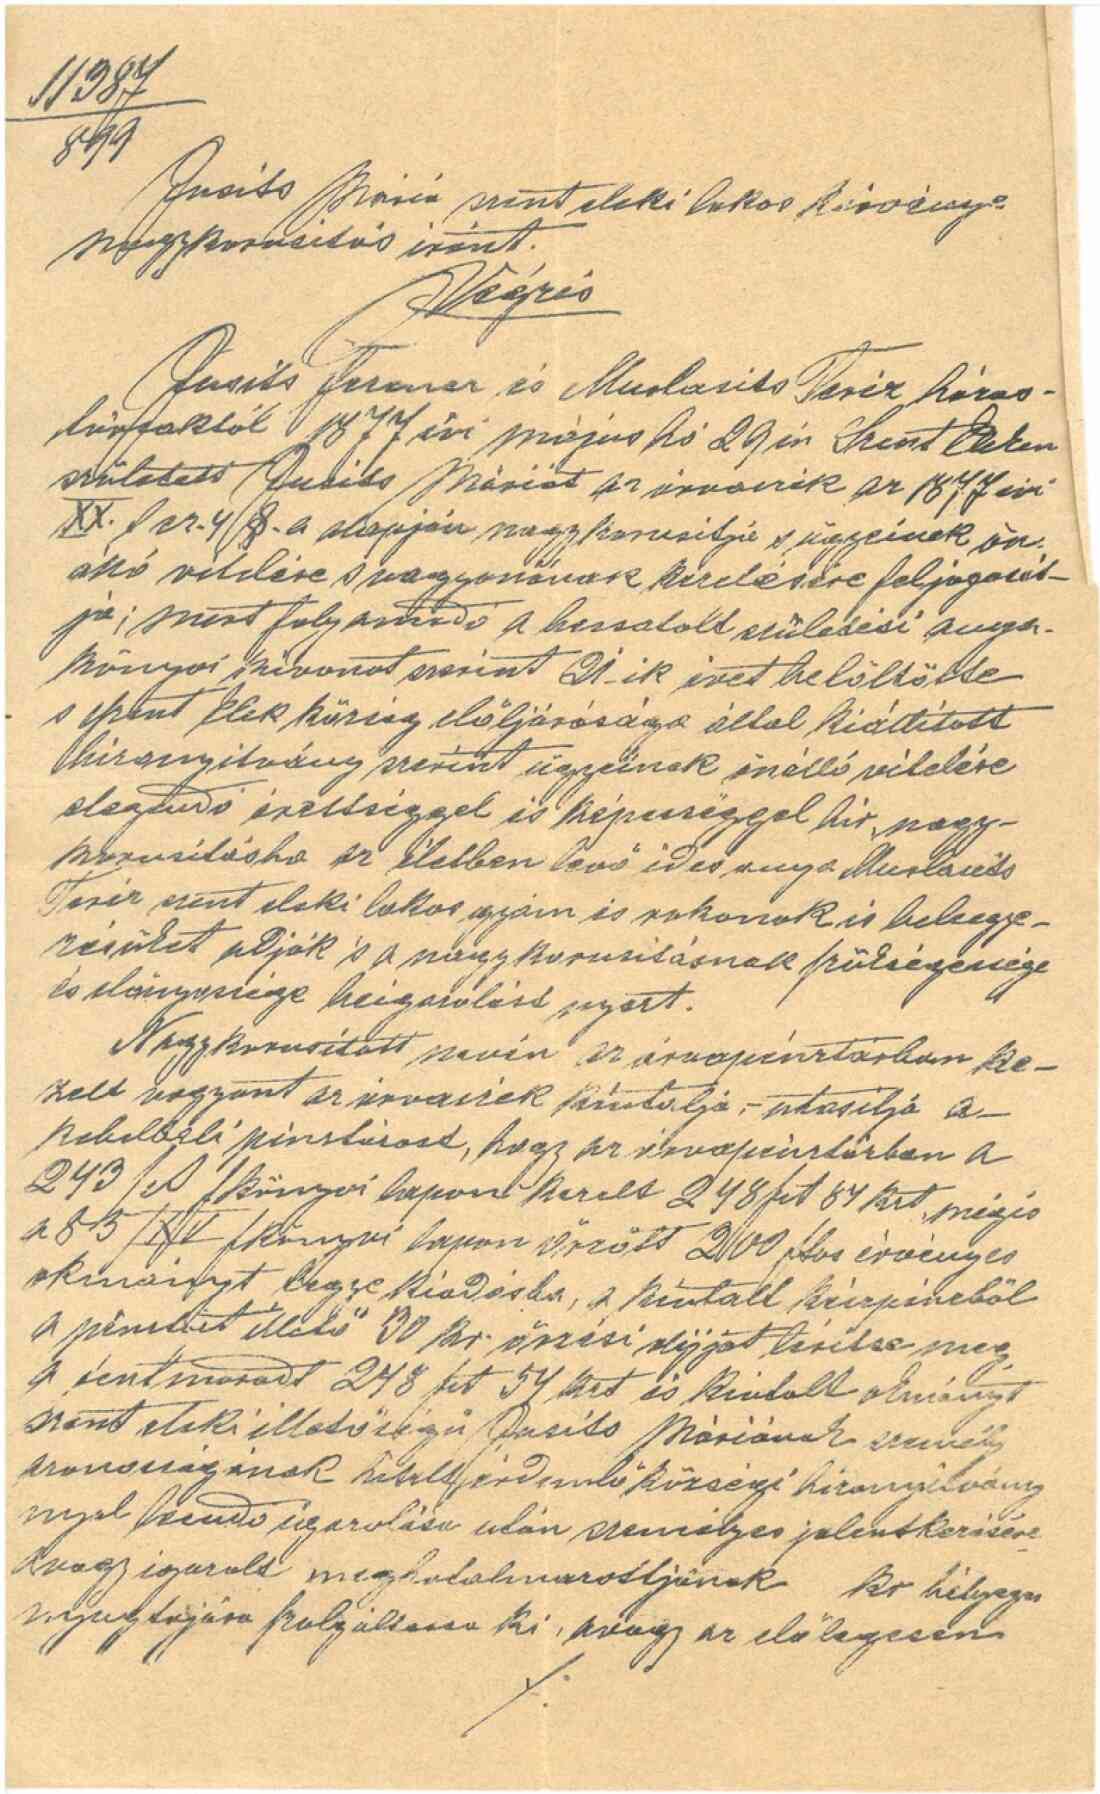 11387
899
Jusits Mária szent eleki lakos kérvénye
nagykorusitás iránt.
Végzés
Jusits Ferencz és Murlasits Teréz házas-
társaktól 1877 évi május hó 29 én Szent Eleken
született Jusits Máriát az árvaszék az 1877 évi
XX. t cz. 4 §-a alapján nagykorusitja s ügyeinek ön-
álló vitelére s vagyonának kezelésére feljogosit-
ja; mert folyamodó a becsatolt születési anya-
könyvi kivonat szerint 21-ik évet betöltötte
s Szent Elek község elöljárósága által kiállitott
bizonyitvány szerint ügyeinek önálló vitelére
elegendő érettséggel és képességgel bir, nagy-
korusitásba az életben levő édes anya Murlasits
Teréz szent eleki lakos gyám és rokonok is beleegye-
zésüket adják s a nagykorusitásnak szükségessége
és előnyössége beigazolást nyert.
Nagykorusitott nevén az árvapénztárban ke-
zelt vagyont az árvaszék kiutalja, - utasitja a
kebelbeli pénztárost, hogy az árvapénztárban a
243 fkönyvi lapon kezelt 248 frt 84 krt, mégis
a 83/XIV fkönyvi lapon őrzött 200 ftos érvényes
okmányt tegye kiadásba, a kiutalt készpénzből
a pénztárt illető 30 kr. őrzési dijját téritse meg,
a fentmaradt 248 frt 54 krt és kiutalt okmányt
szent eleki illetőségü Jusits Máriának személy
azonosságának hitelt érdemlő községi bizonyitvány
nyal leendő igazolása után személyes jelentkezésére
avagy igazolt meghatalmazottjának kr bélyeges
nyugtájára szolgáltassa ki, avagy az előlegesen
./.